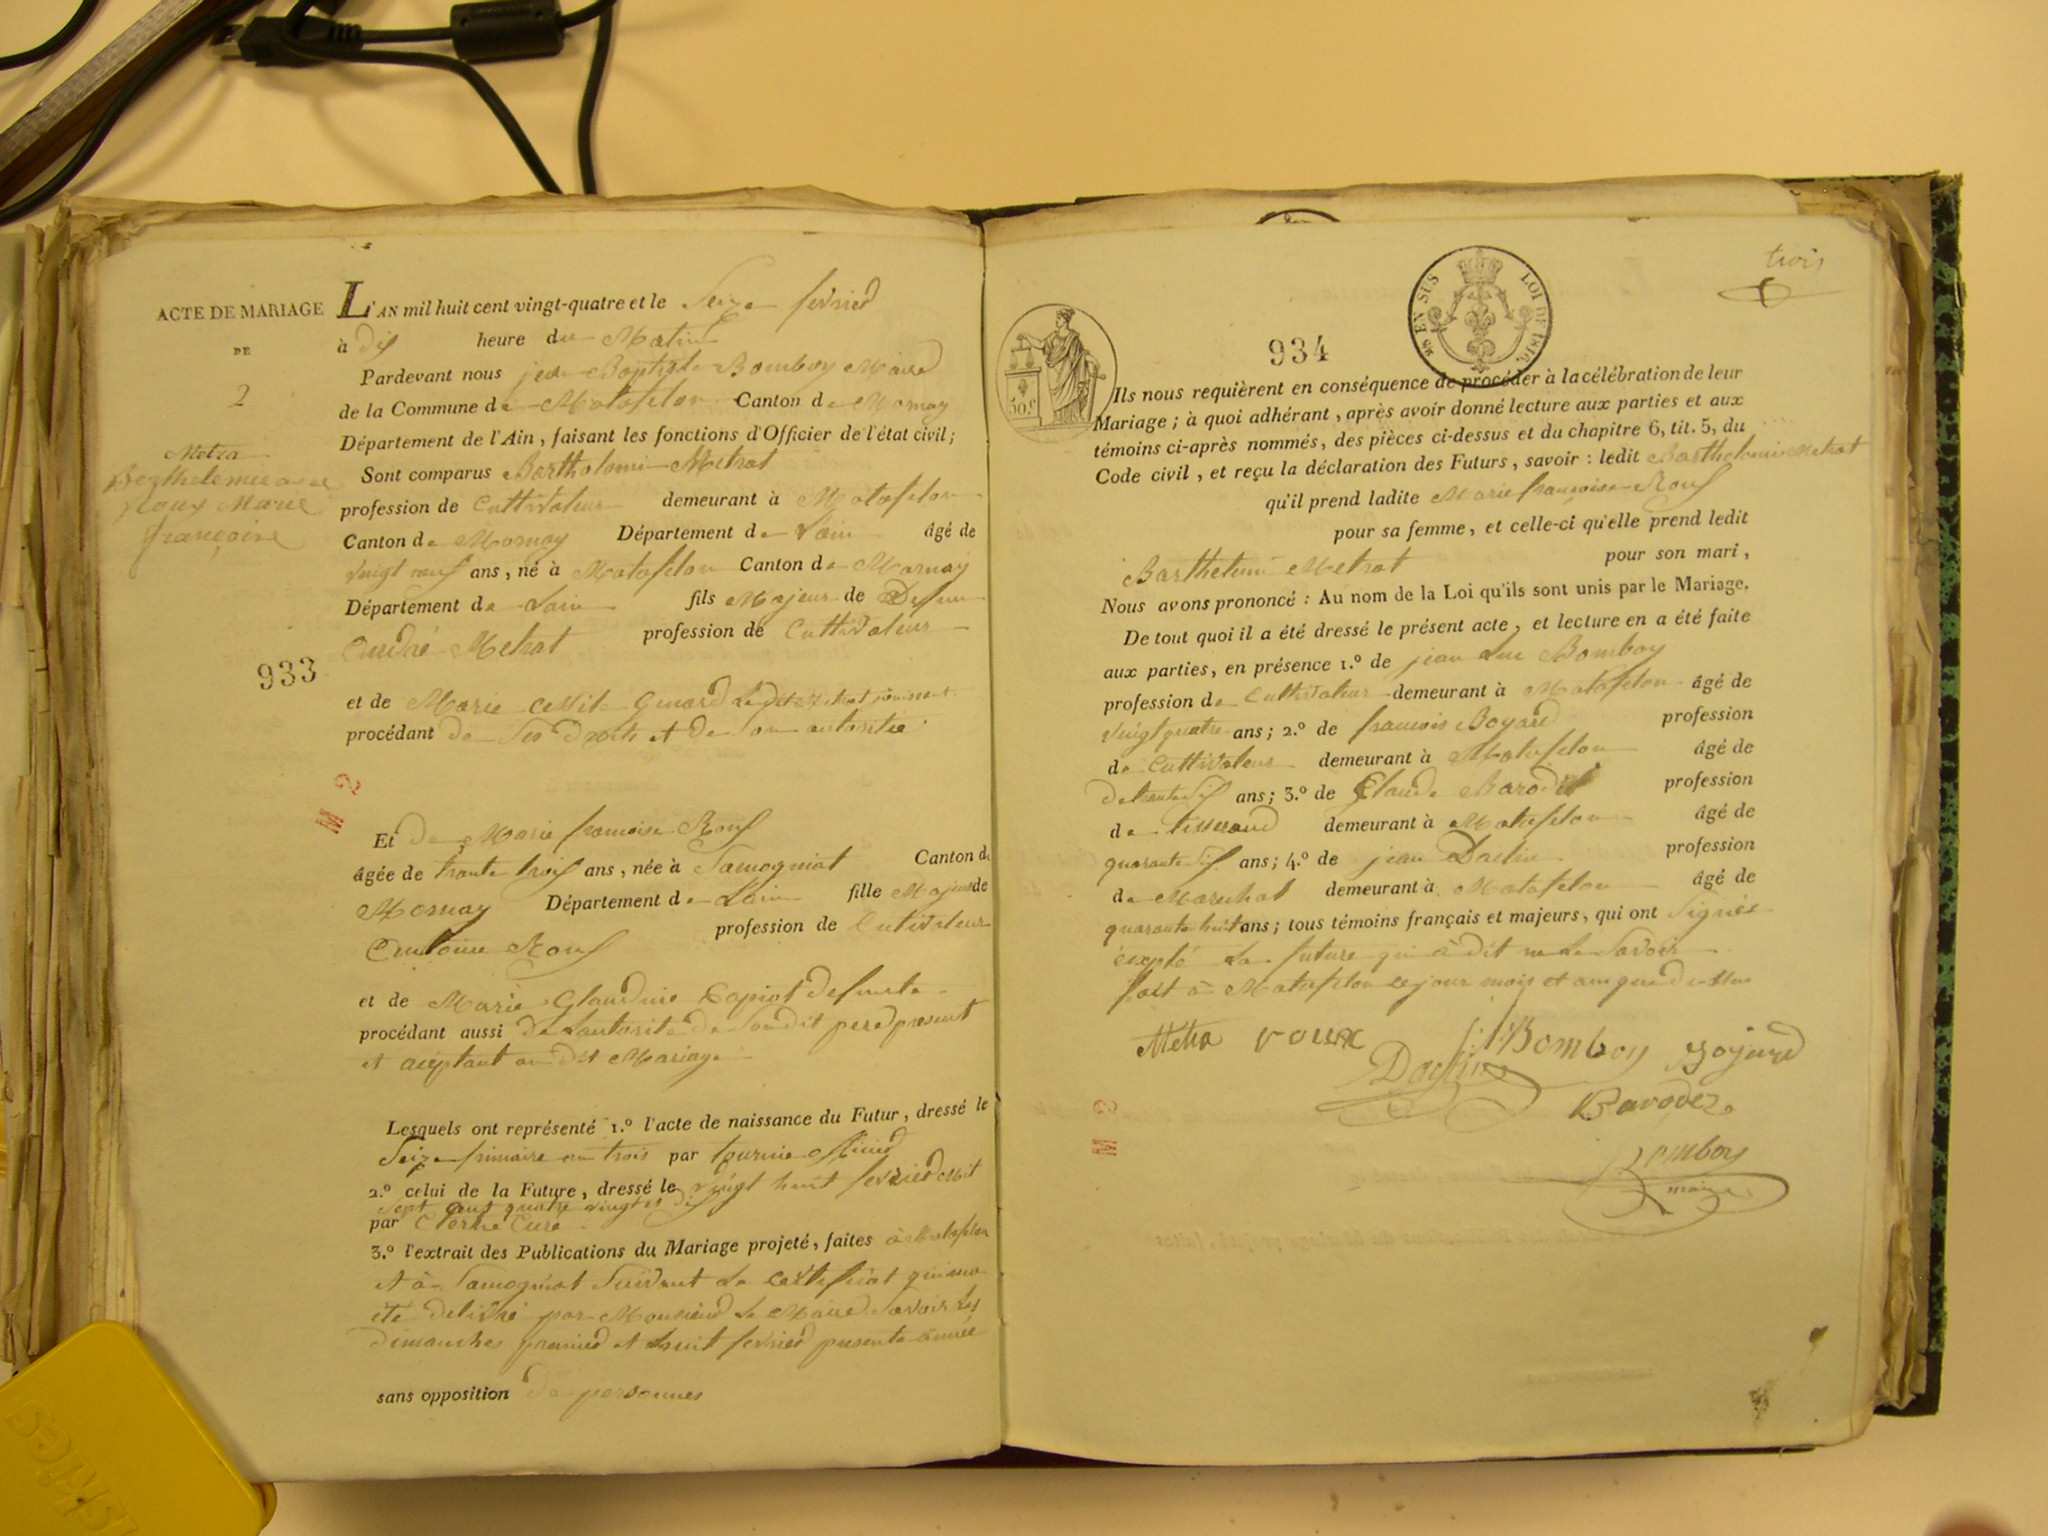 ACTE DE MARIAGE
DE
2
Metra
Berthelemie avec
Roux Marie
françoise
933
L'AN mil huit cent vingt-quatre et le Seize fevrier
à dix heure du Matin
Pardevant nous jean Baptiste Bomboy Maire
de la Commune de Matafelon Canton de Mornay
Département de l'Ain, faisant les fonctions d'Officier de l'état civil;
Sont comparus Barthelemi Metrat
profession de Cultivateur demeurant à Matafelon
Canton de Mornay Département de Lain âgé de
vingt neuf ans, né à Matafelon Canton de Mornay
Département de Lain fils Majeur de Defun
André Metrat profession de Cultivateur
et de Marie Ledit Metrat
procédant de Ses droits et de Son autorité
M 2
Et de Marie francoise Roux
âgée de trante trois ans, née à Samogniat Canton de
Mornay Département de Lain fille Majeur de
Antoine Roux profession de Cultivateur
et de Marie Glaudine defunte
procédant aussi de Lautorite de Sondit pere present
et aceptant audit Mariage
Lesquels ont représenté 1.º l'acte de naissance du Futur, dressé le
Seize frimaire an trois par
2.º celui de la Future, dressé le vingt huit fevrier mil
Sept cent quatre vingt dix
par Curé
3.º l'extrait des Publications du Mariage projeté, faites à Matafelon
et à Samogniat Suivant Le certificat qui ma
ete delivré par Monsieur Le Maire Savoir Les
dimanches premier et huit fevrier presente année
sans opposition de personnes
trois
934
EN SUS
LOI DE 1816
50.c
Ils nous requièrent en conséquence de procéder à la célébration de leur
Mariage; à quoi adhérant, après avoir donné lecture aux parties et aux
témoins ci-après nommés, des pièces ci-dessus et du chapitre 6, tit. 5, du
Code civil, et reçu la déclaration des Futurs, savoir: ledit Barthelemi Metrat
qu'il prend ladite Marie françoise Roux
pour sa femme, et celle-ci qu'elle prend ledit
Barthelemi Metrat pour son mari,
Nous avons prononcé: Au nom de la Loi qu'ils sont unis par le Mariage.
De tout quoi il a été dressé le présent acte, et lecture en a été faite
aux parties, en présence 1.º de jean Luc Bomboy
profession de Cultivateur demeurant à Matafelon âgé de
vingt quatre ans; 2.º de francois Boyard profession
de Cultivateur demeurant à Matafelon âgé de
de trante dix ans; 3.º de Claude Barodet profession
de tisserand demeurant à Matafelon âgé de
quarante dix ans; 4.º de jean Daclin profession
de Marechal demeurant à Matafelon âgé de
quarante huit ans; tous témoins français et majeurs, qui ont Signés
excepté La future qui à dit ne Le Savoir
fait à Matafelon ce jour mois et an que dessus
Metra roux Bomboy Boyard
Daclin
Barodez
M 2
Bomboy
maire